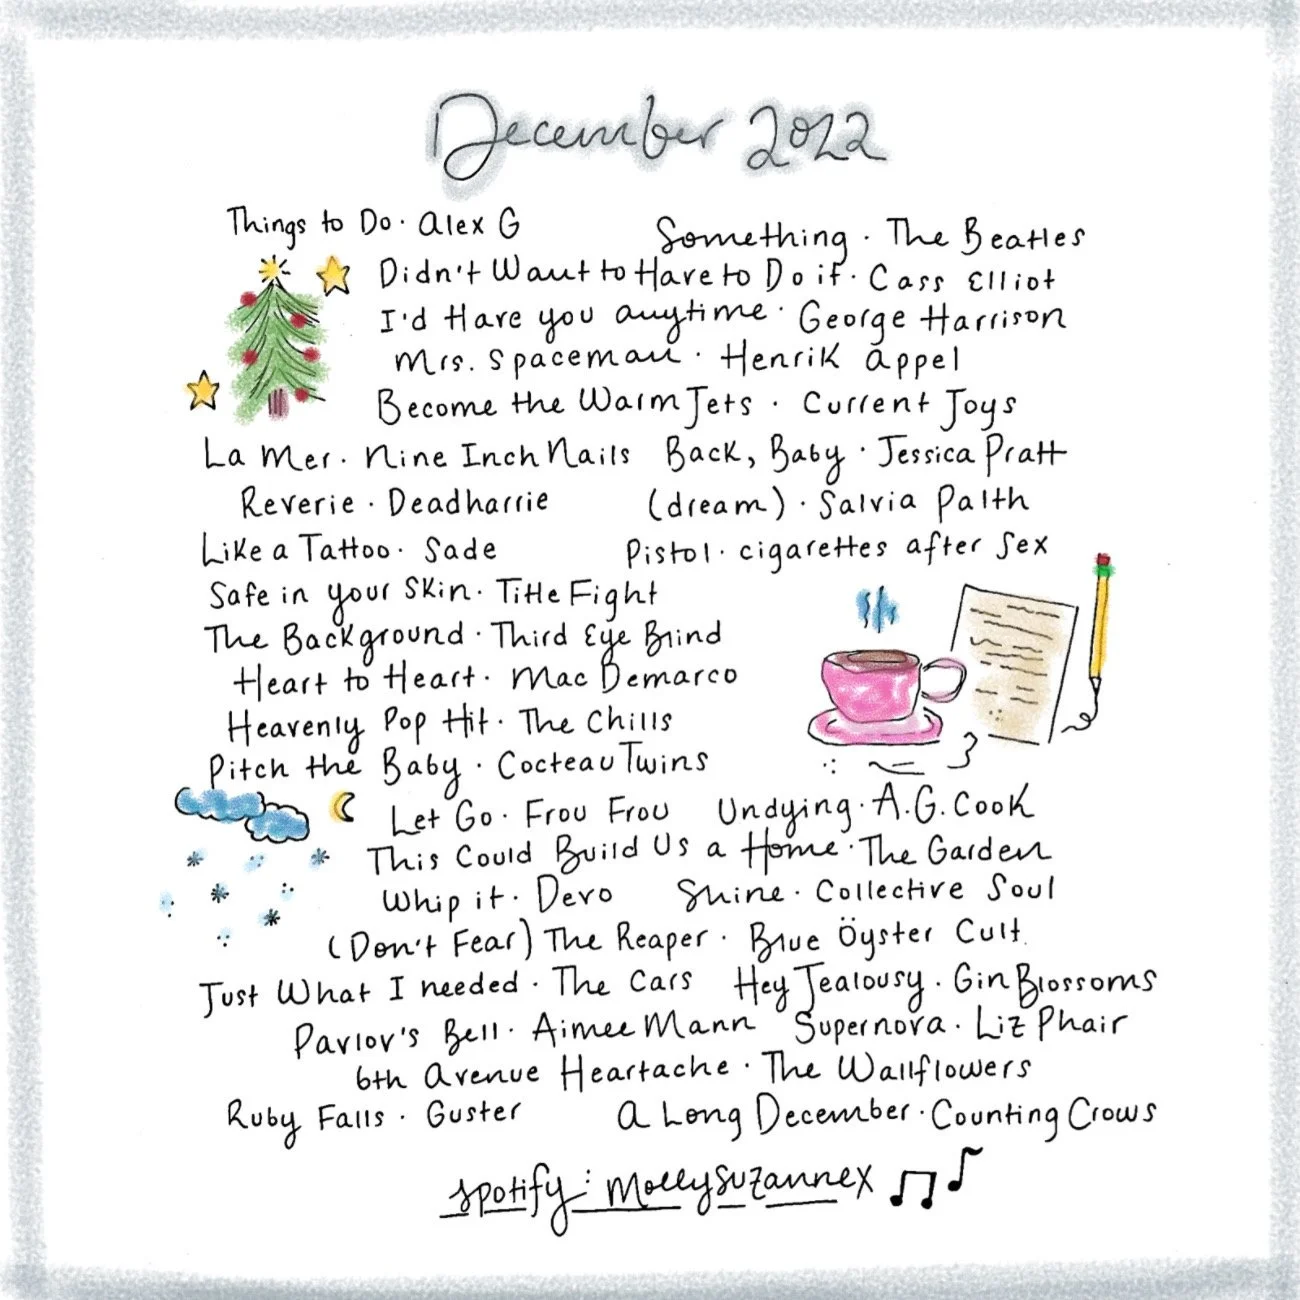 December 2022
Things to Do · Alex G Something · The Beatles
Didn't Want to Have to Do it · Cass Elliot
I'd Have you anytime · George Harrison
Mrs. Spaceman · Henrik Appel
Become the Warm Jets · Current Joys
La Mer · Nine Inch Nails Back, Baby · Jessica Pratt
Reverie · Deadharrie (dream) · Salvia Palth
Like a Tattoo · Sade Pistol · cigarettes after sex
Safe in your Skin · Title Fight
The Background · Third Eye Blind
Heart to Heart · Mac Demarco
Heavenly Pop Hit · The Chills
Pitch the Baby · Cocteau Twins
Let Go · Frou Frou Undying · A.G. Cook
This Could Build Us a Home · The Garden
Whip it · Devo Shine · Collective Soul
(Don't Fear) The Reaper · Blue Öyster Cult
Just What I needed · The Cars Hey Jealousy · Gin Blossoms
Pavlov's Bell · Aimee Mann Supernova · Liz Phair
6th Avenue Heartache · The Wallflowers
Ruby Falls · Guster A Long December · Counting Crows
spotify: mollysuzannex